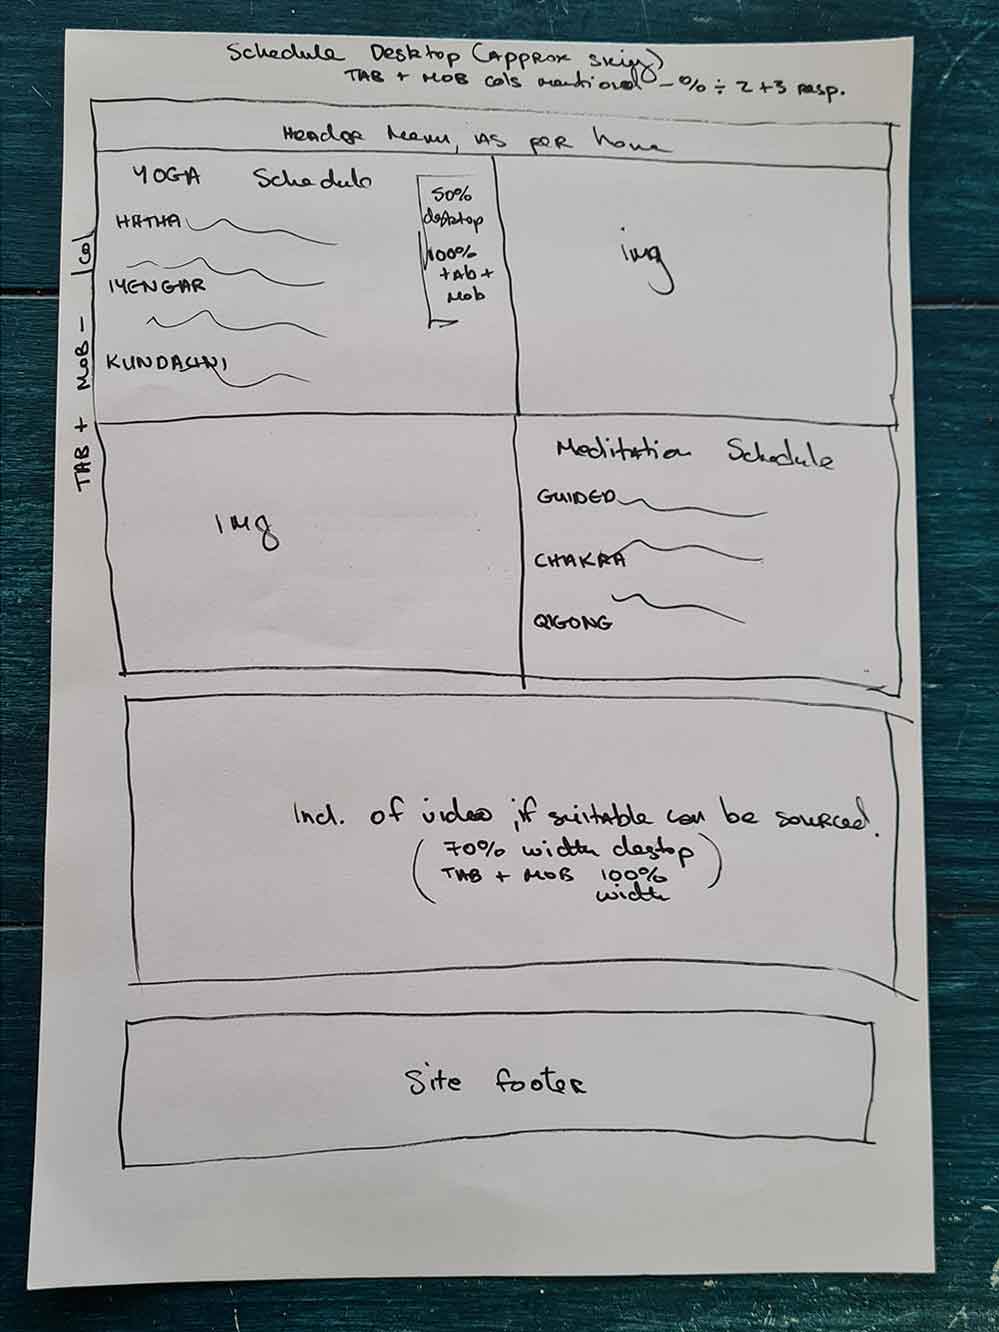 Schedule Desktop (Approx
TAB + MOB cols mentioned - % ÷ 2 + 3 resp.
Header Menu, AS PER home
YOGA Schedule
HATHA
IYENGAR
KUNDALINI
50%
desktop
100%
tAb +
Mob
img
TAB + MOB - 1 col
img
Meditation Schedule
GUIDED
CHAKRA
QIGONG
Incl. of video, if suitable can be sourced.
(70% width desktop)
TAB + MOB 100%
width
Site footer